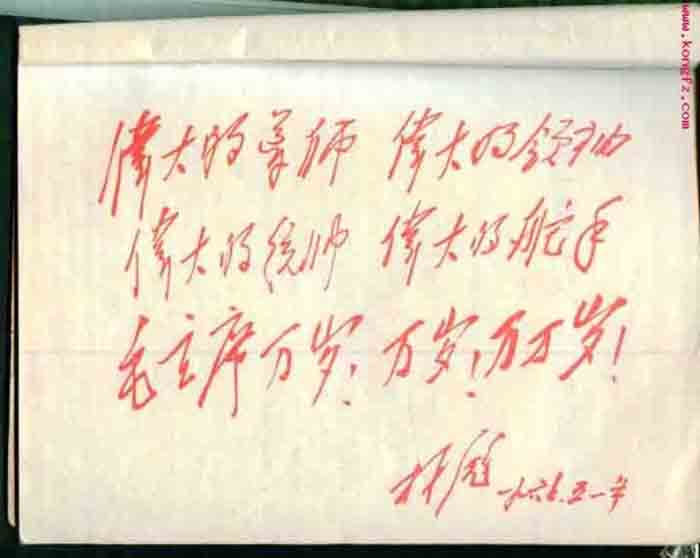 偉大的导师 偉大的领袖
偉大的统帅 偉大的舵手
毛主席万岁!万岁!万万岁!
林彪
www.kongfz.com